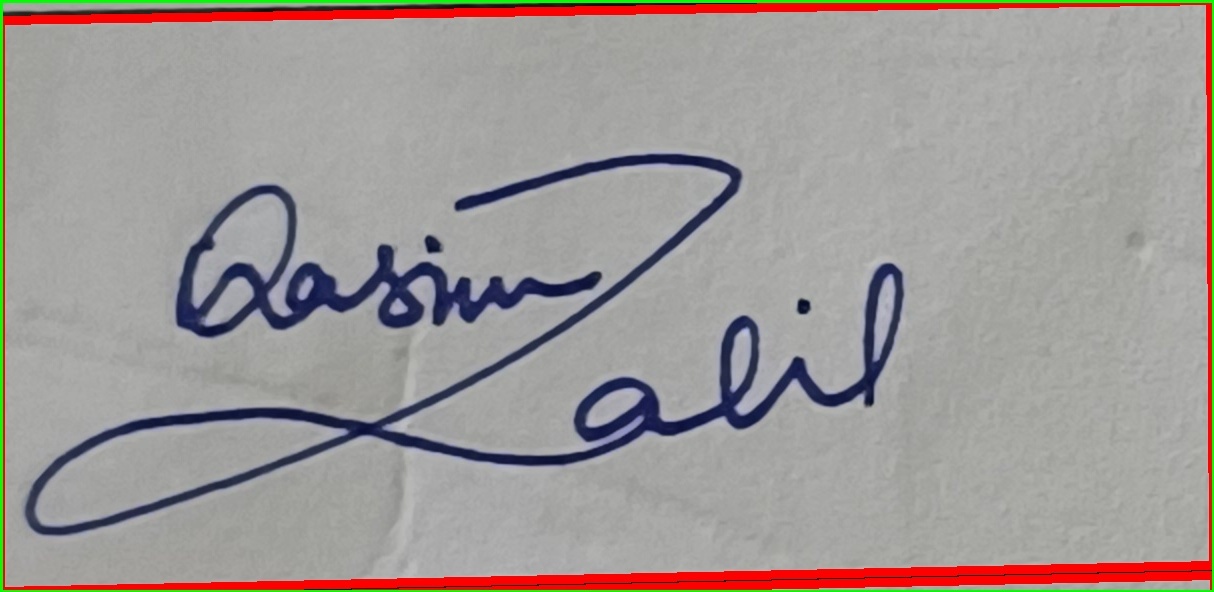 Qasim
Zabil